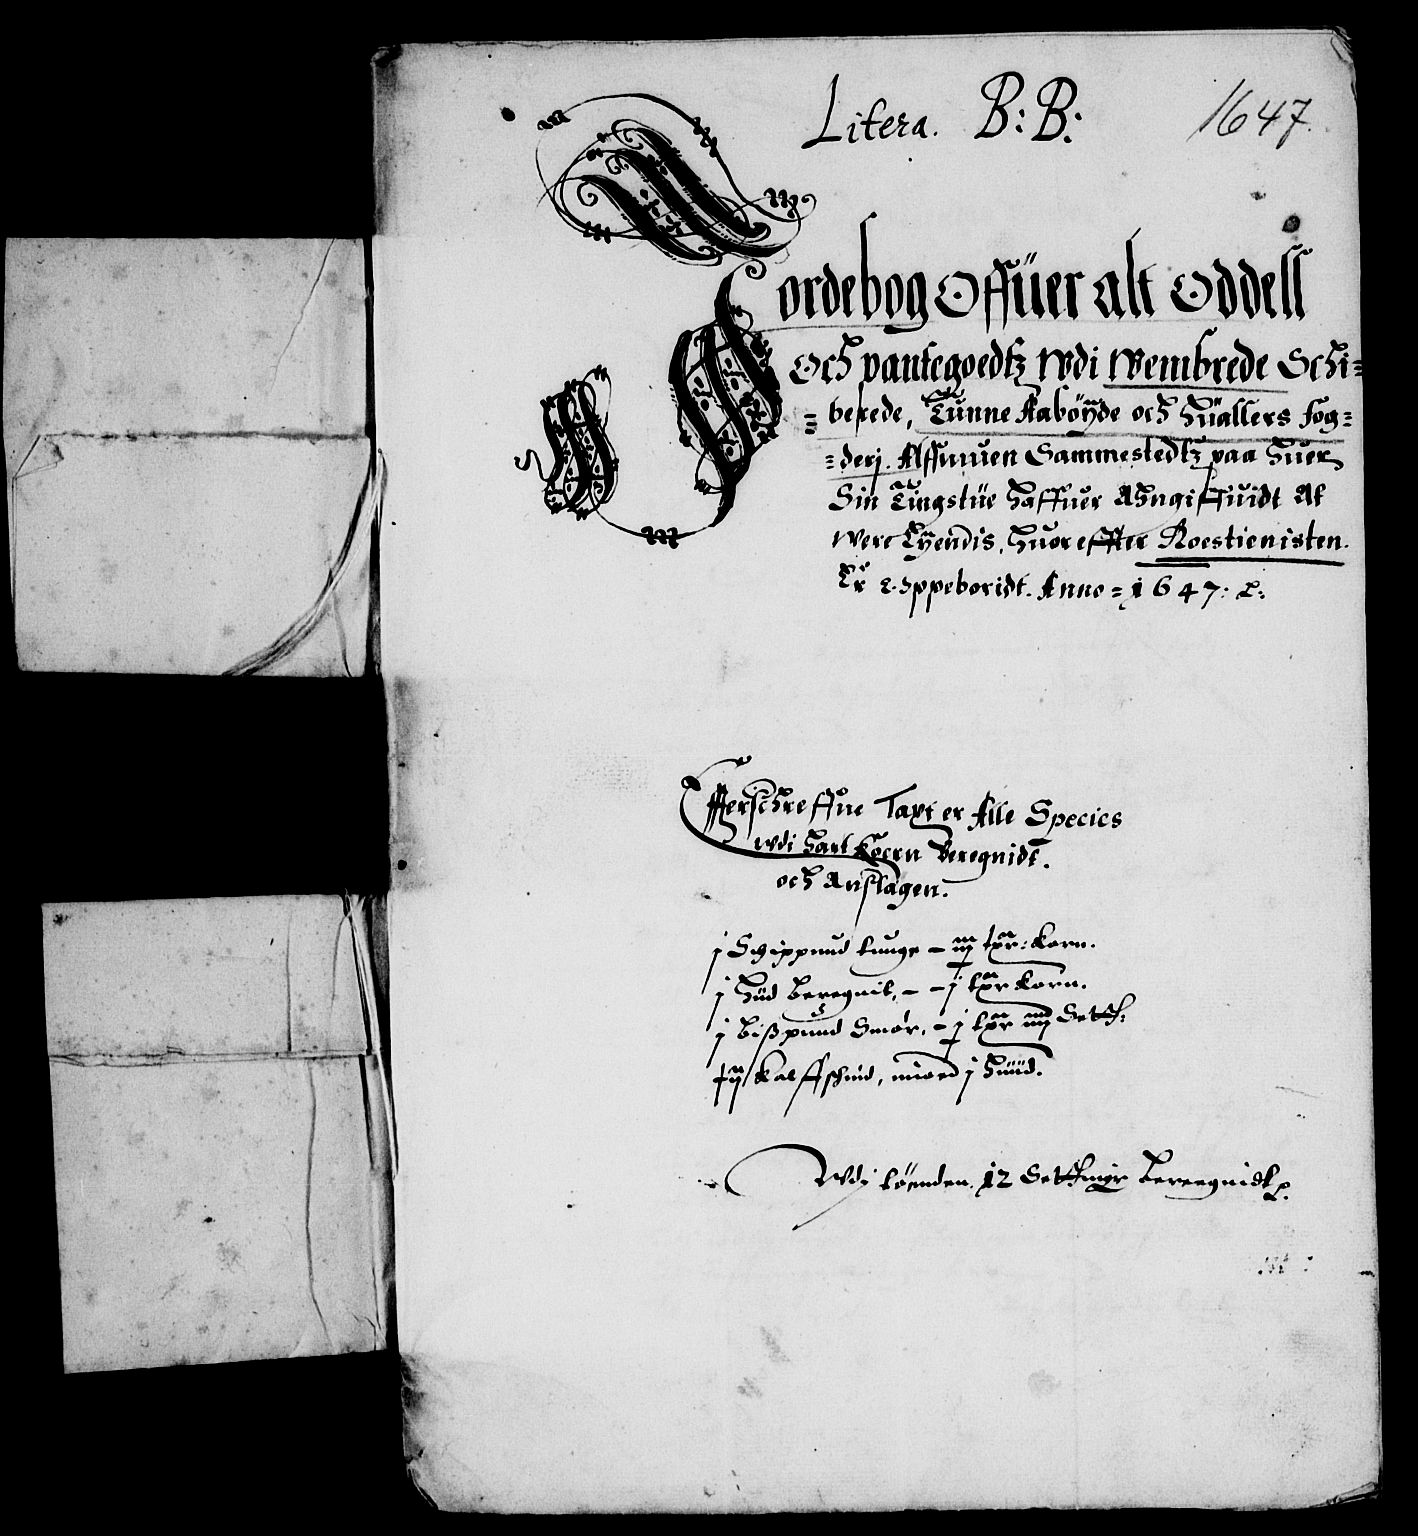 Litera. B: B: 1647.
Jordebog Offuer alt Oddell
Och pantegoedtz Udi Wembrede Schi=
=berede, Tunne Aabøyde och Huallers fog=
=derj. Alffuuen Sammestedtz paa Huer
Sin Tingstue Haffuer Ahngiffuidt At
were Eyendis, Huoreffter Roestienisten.
Er Oppeboridt. Anno = 1647:
Effterschreffne Taxt er Alle Species
Udi Hart Koern Beregnidt.
och Anslagen.
j Schippund tunge - iij tpr: Korn.
j Hud beregnit, - - j tpr Korn.
j Bispund Smør, - j tpr iiij Sett:
Kalffschind, imoed j Huud.
Udj tønden 12 Settingr bereegnidt